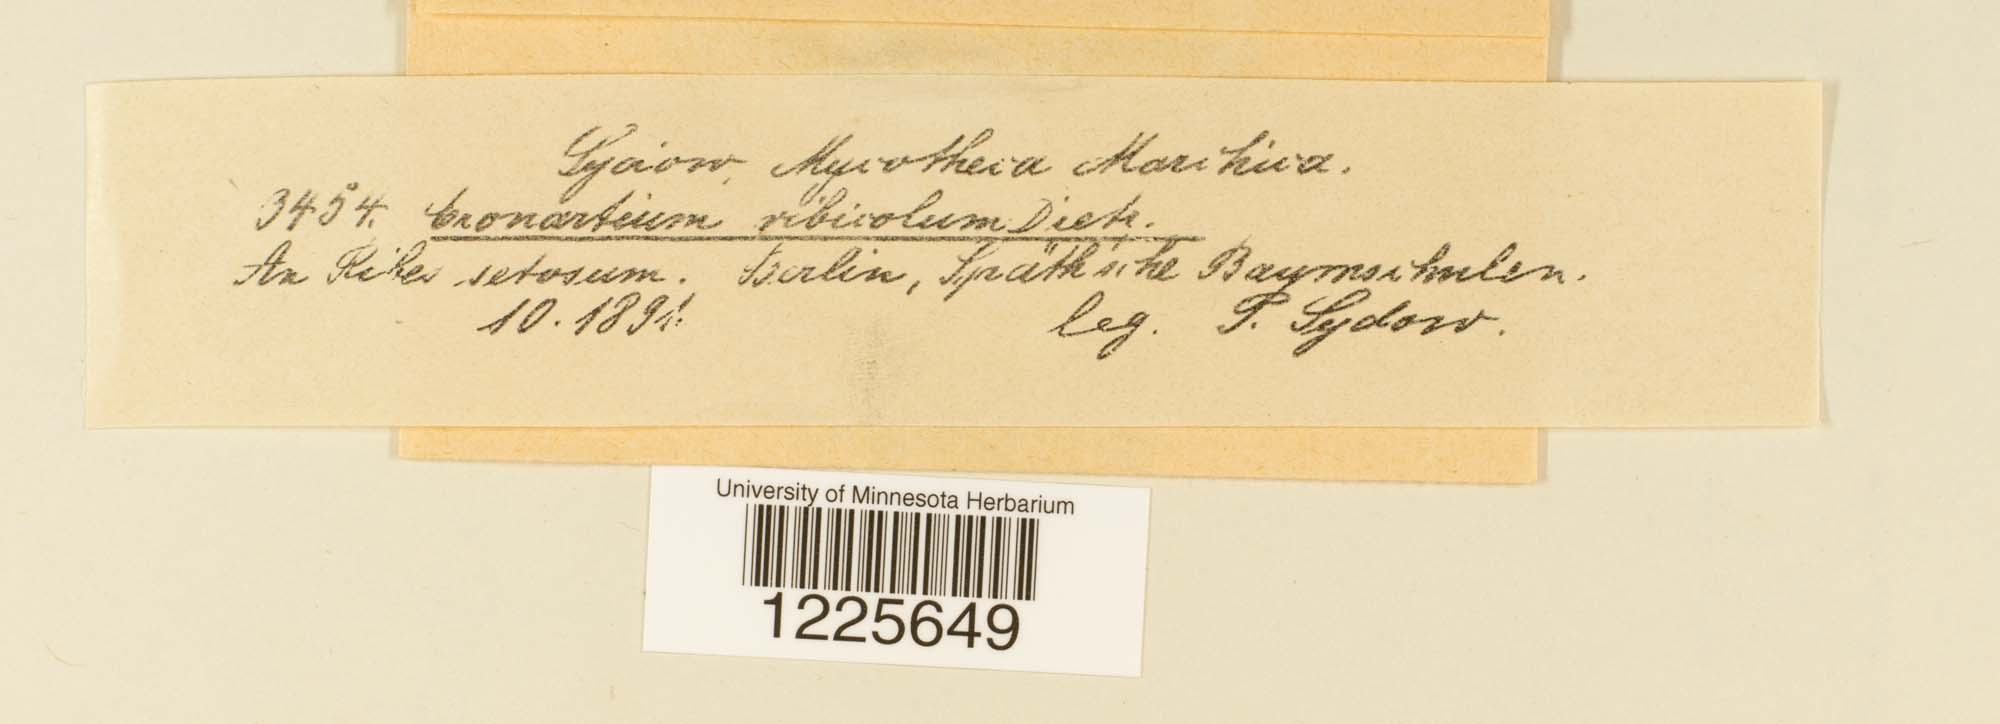 Sydow, Mycotheca Marchica.
3454. Cronartium ribicolum Dietr.
An Ribes setosum. Berlin, Späth'sche Baumschulen.
10. 1891. leg. P. Sydow.
University of Minnesota Herbarium
1225649